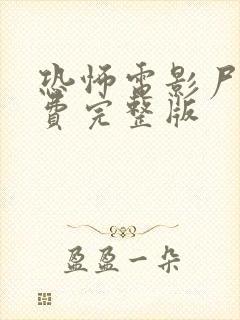 恐怖电影尸
费完整版
盈盈一朵